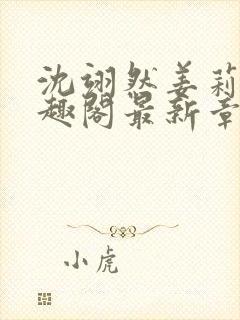 沈翊然姜莉
趣阁最新章
小虎